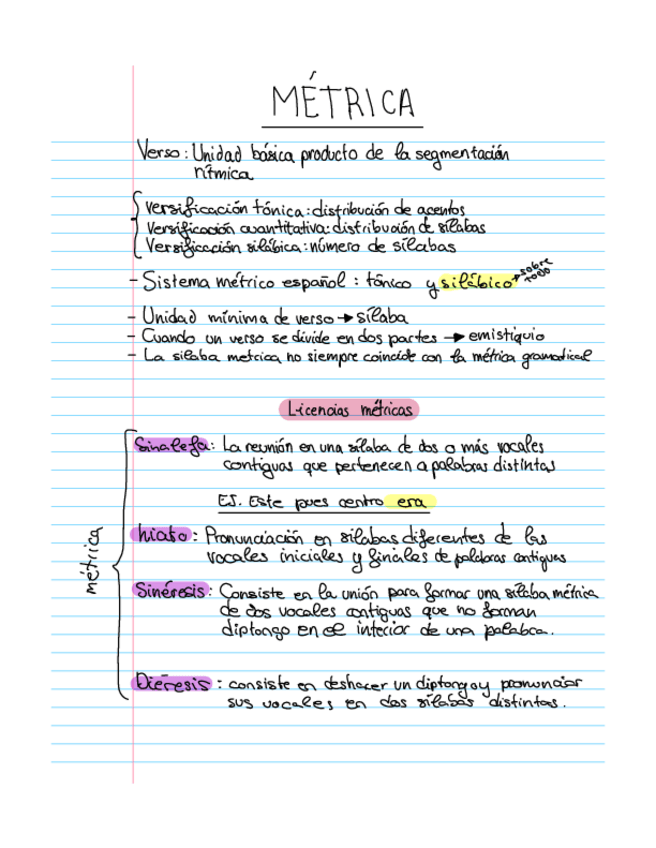 MÉTRICA
Verso: Unidad básica producto de la segmentación
rítmica
versificación tónica: distribución de acentos
Versificación cuantitativa: distribución de sílabas
Versificación silábica: número de sílabas
- Sistema métrico español: tónico y silábico → sobre todo
- Unidad mínima de verso → sílaba
- Cuando un verso se divide en dos partes → emistiquio
- La sílaba metrica no siempre coincide con la métrica gramatical
Licencias métricas
métrica
Sinalefa: La reunión en una sílaba de dos o más vocales
contiguas que pertenecen a palabras distintas
EJ. Este pues centro era
hiato: Pronunciación en sílabas diferentes de las
vocales iniciales y finales de palabras contiguas
Sinéresis: Consiste en la unión para formar una sílaba métrica
de dos vocales contiguas que no forman
diptongo en el interior de una palabra.
Diéresis: consiste en deshacer un diptongo y pronunciar
sus vocales en dos sílabas distintas.